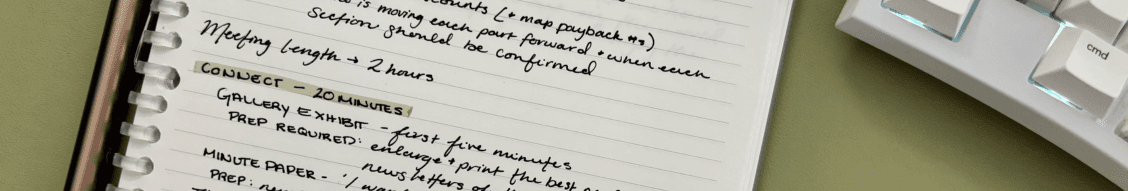 counts (+ map payback #s)
is moving each part forward + when each
section should be confirmed
Meeting length → 2 hours
CONNECT - 20 MINUTES
GALLERY EXHIBIT - first five minutes
PREP REQUIRED: enlarge + print the best
newsletters of
MINUTE PAPER -
PREP:
cmd